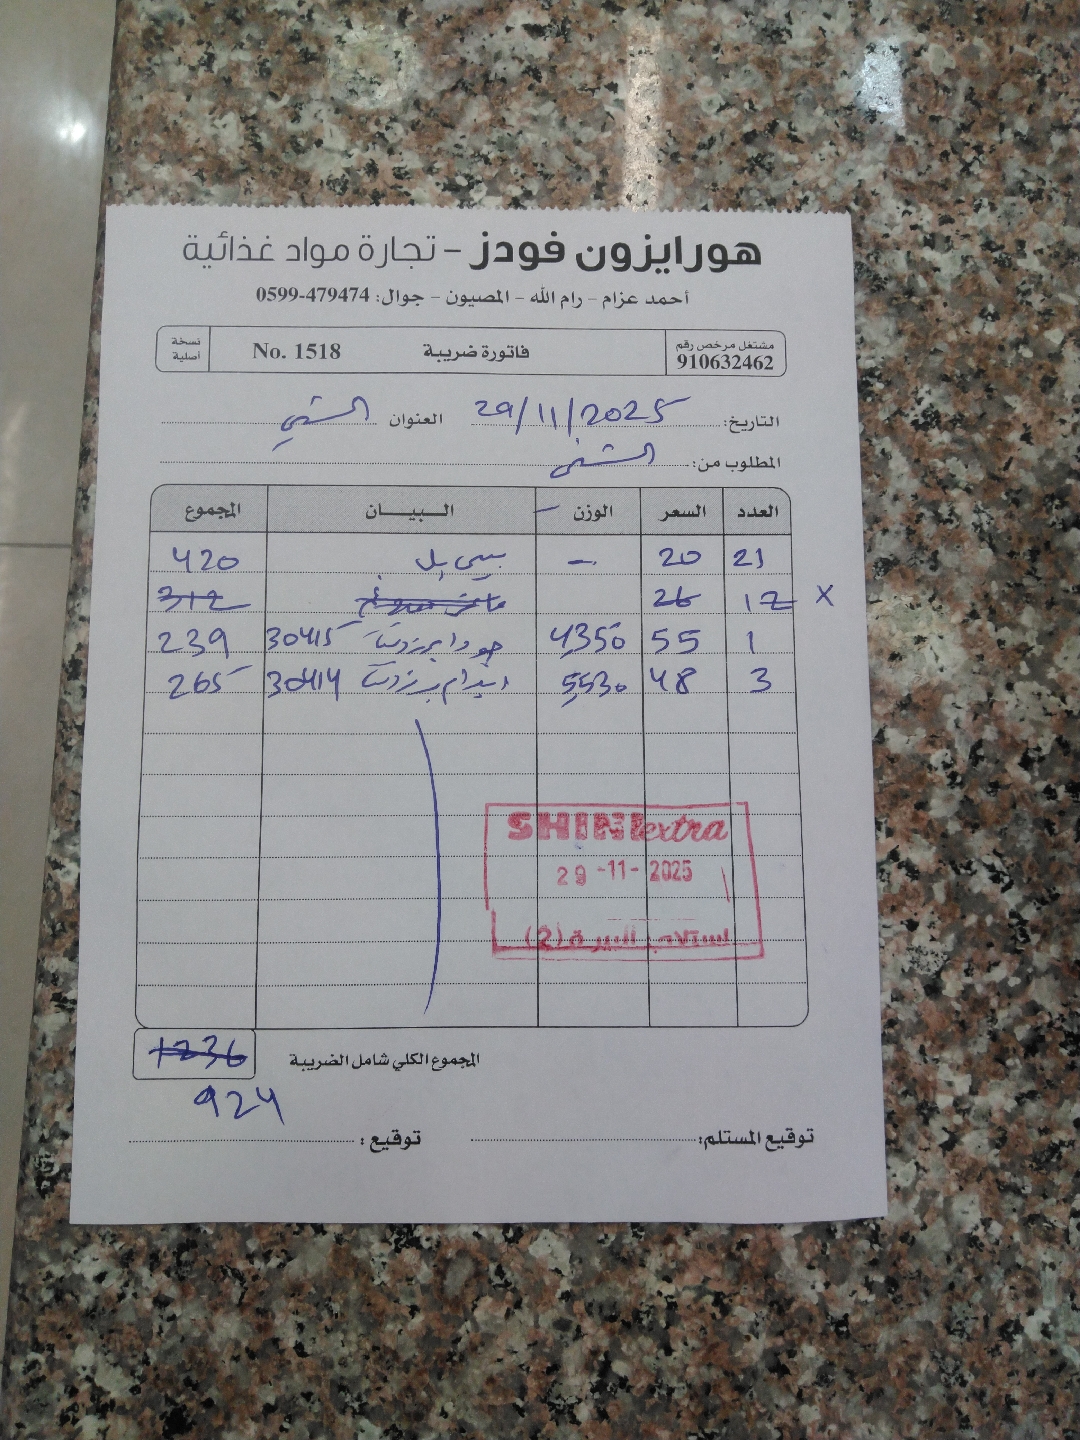 هورايزون فودز - تجارة مواد غذائية
أحمد عزام - رام الله - المصيون - جوال: 0599-479474
مشتغل مرخص رقم 910632462 فاتورة ضريبة No. 1518 نسخة أصلية
التاريخ: 29/11/2025 العنوان الشني
المطلوب من: الشني
العدد السعر الوزن البيـــان المجموع
21 20 - بيبي بل 420
12 26 312 X
1 55 4,350 جودا برزدنت 30415 239
3 48 5,530 ايدام برزدنت 30414 265
SHINI extra
29 -11- 2025
استلام البيرة (2)
المجموع الكلي شامل الضريبة 1236
924
توقيع المستلم: توقيع :